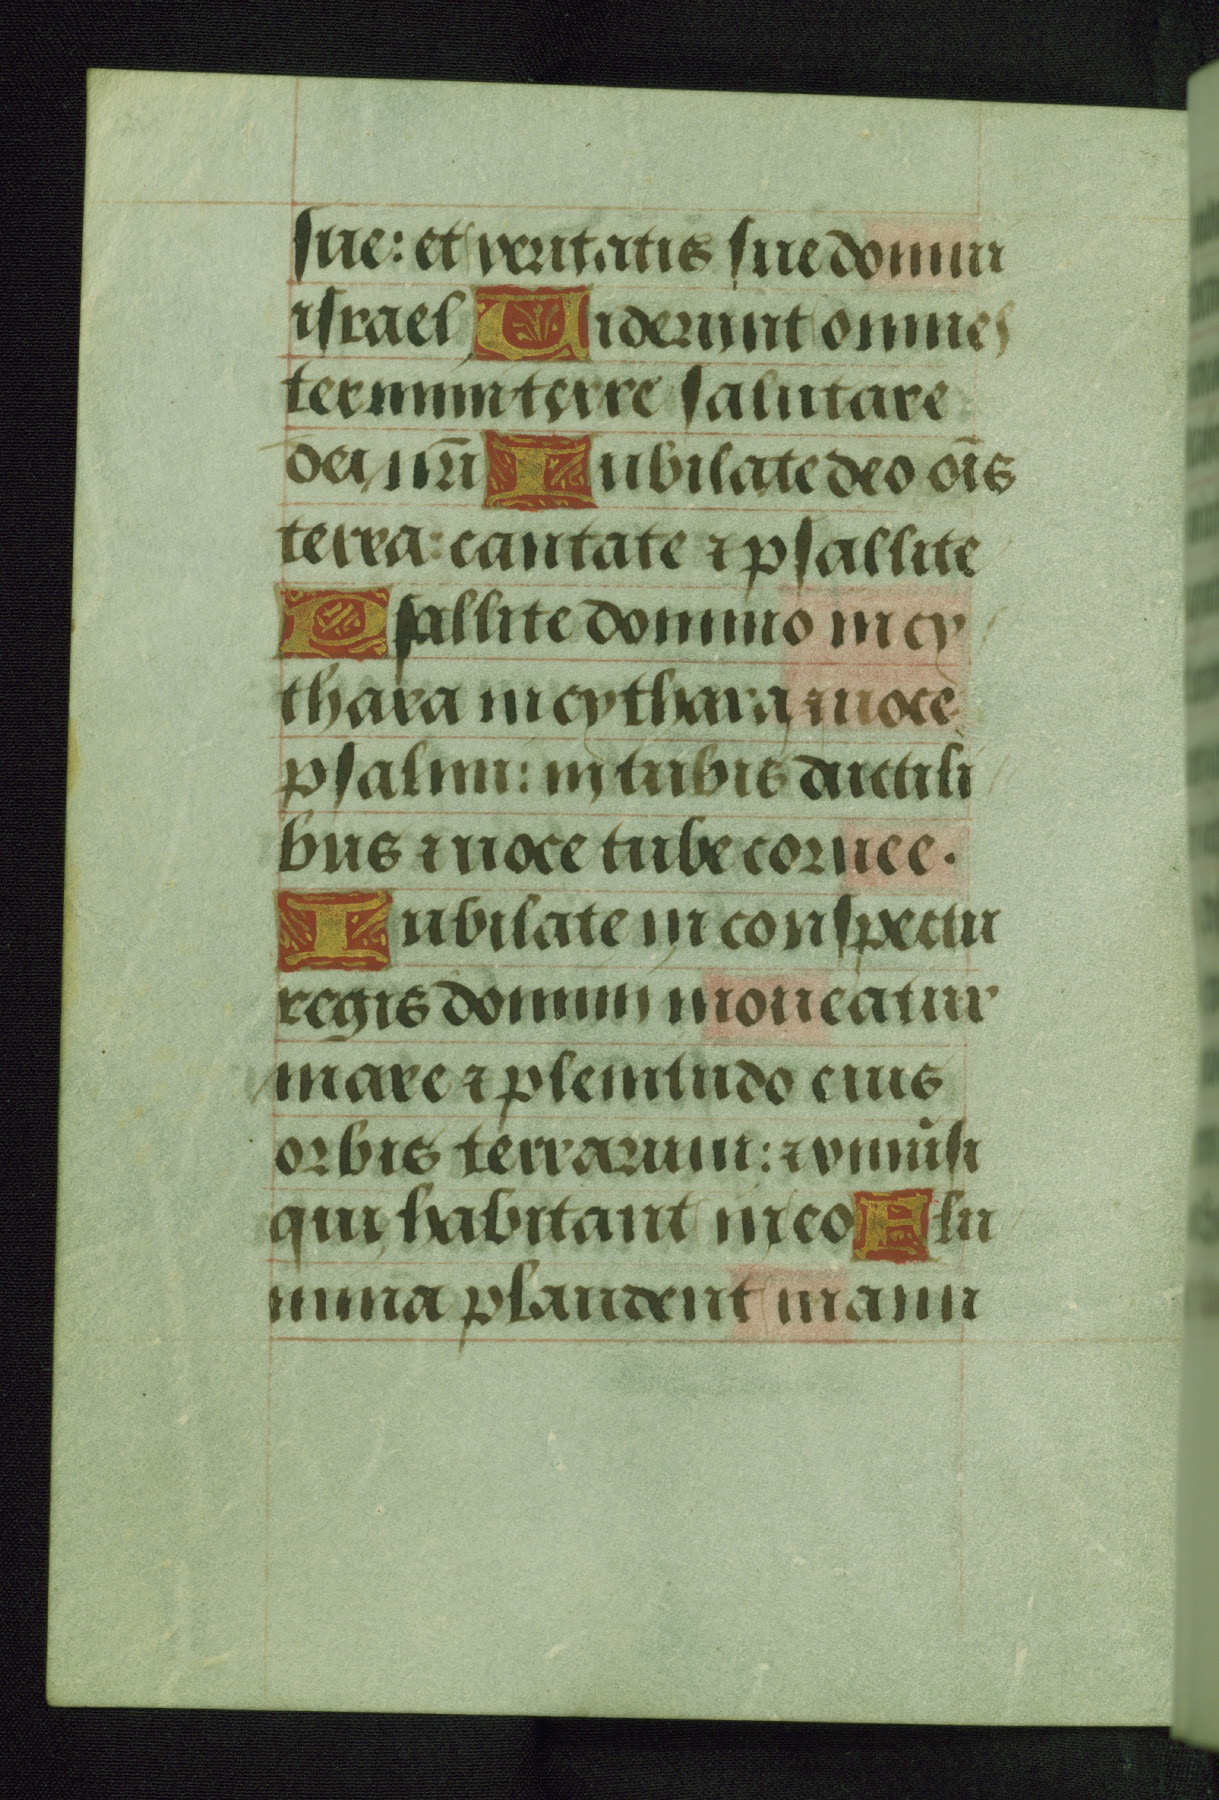 sue: et veritatis sue domui
israel Uiderunt omnes
termini terre salutare
dei nr̄i Iubilate deo oīs
terra: cantate ⁊ psallite
Psallite domino in cy
thara in cythara ⁊ uoce
psalmi: in tubis ductili
bus ⁊ uoce tube cornee.
Iubilate in conspectu
regis domini moueatur
mare ⁊ plenitudo eius
orbis terrarum: ⁊ vniūsi
qui habitant in eo Flu
mina plaudent manu